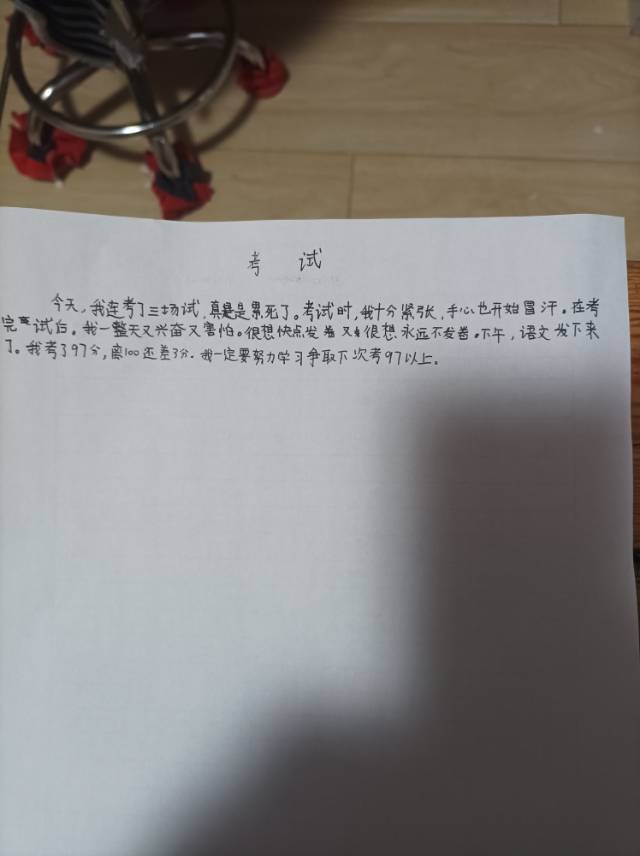 考 试
今天,我连考了三场试,真是是累死了。考试时,我十分紧张,手心也开始冒汗。在考
完试后。我一整天又兴奋又害怕。很想快点发卷 又很想永远不发卷。下午,语文发下来
了。我考了97分,离100还差3分.我一定要努力学习争取下次考97以上。